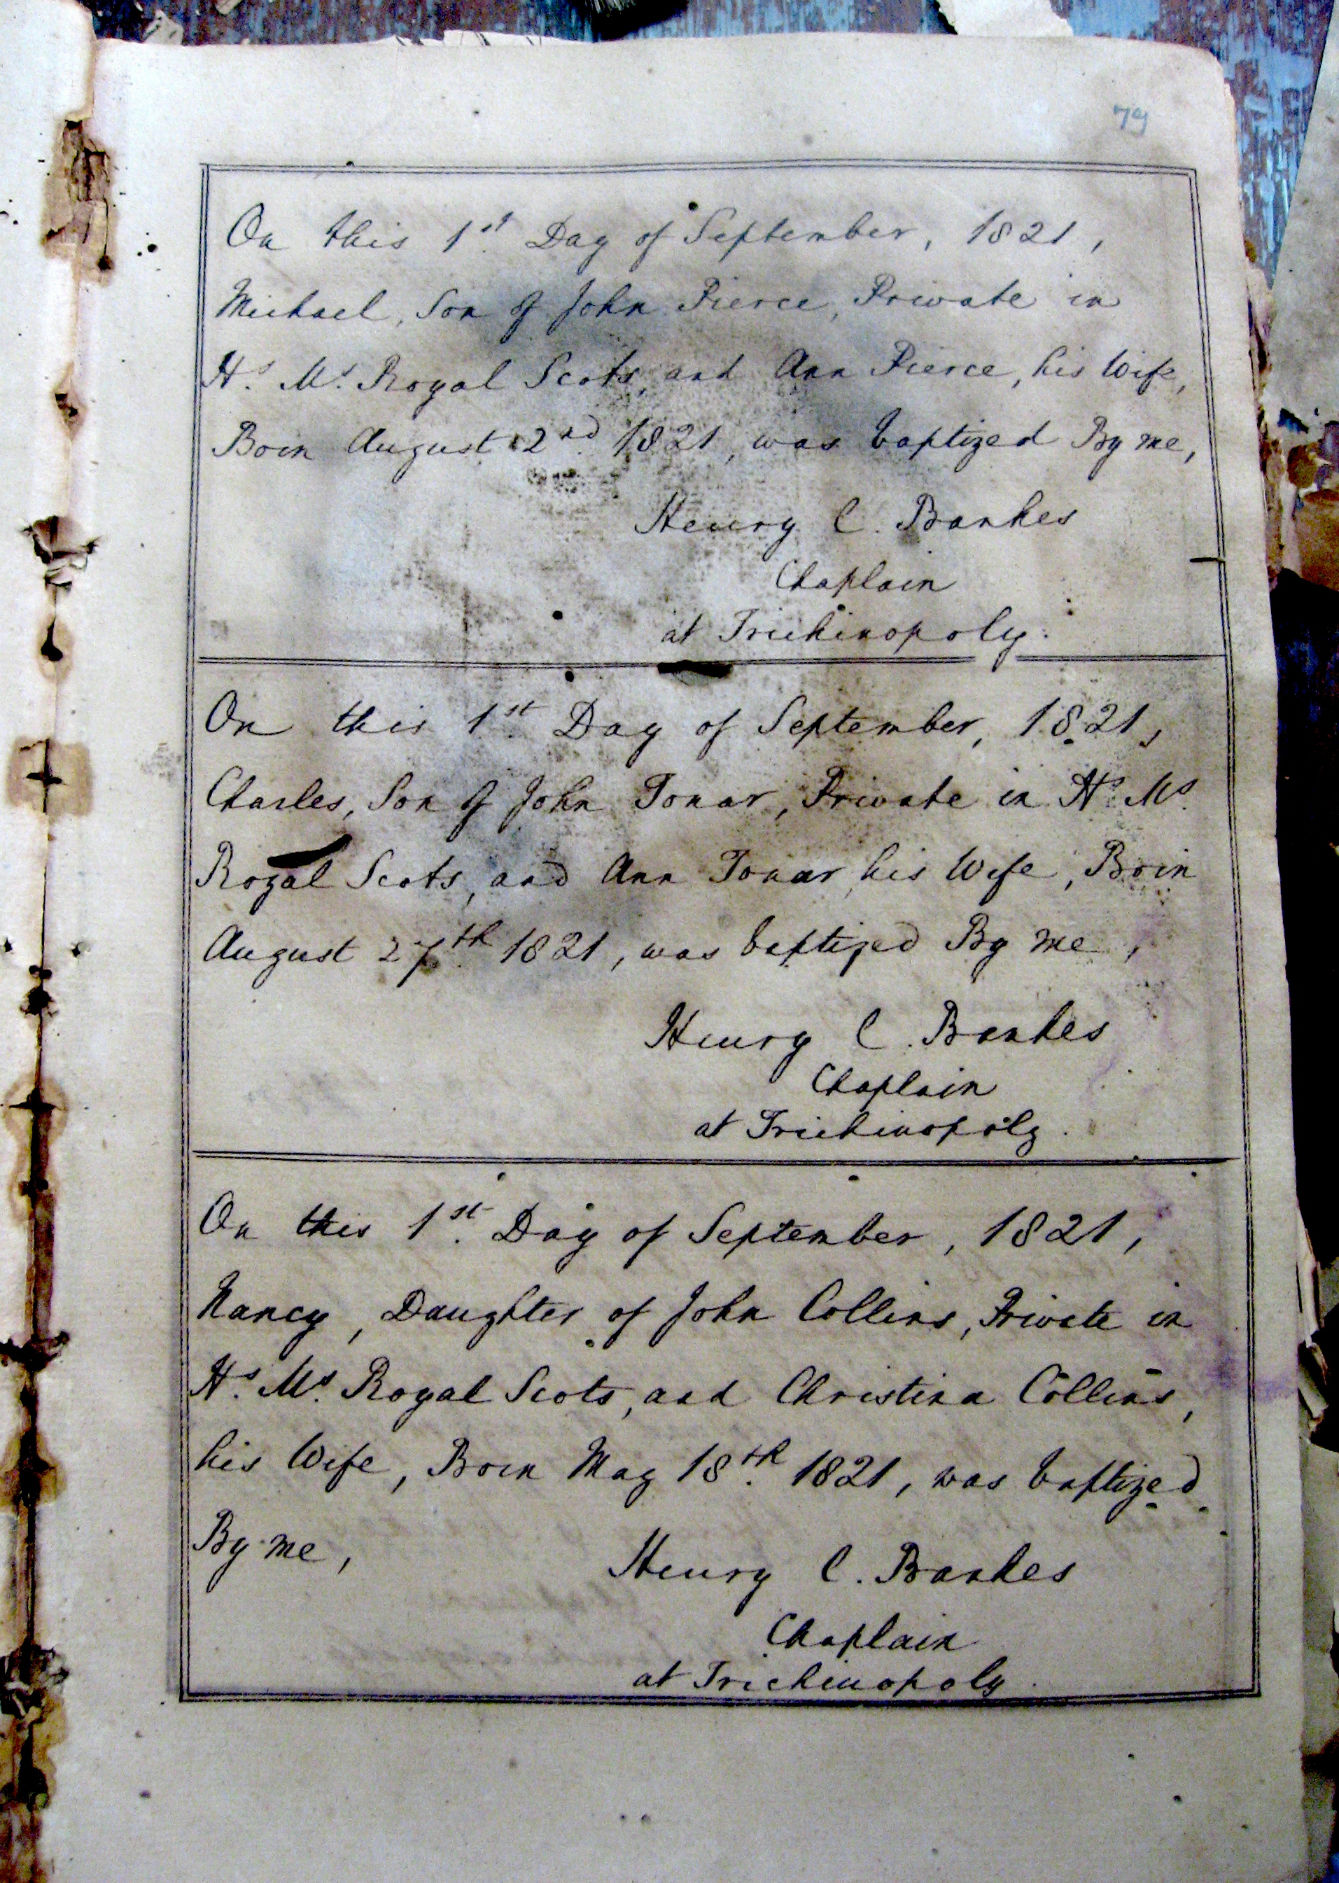 79
On this 1st Day of September, 1821,
Michael, Son of John Pierce, Private in
H.s M.s Royal Scots, and Ann Pierce, his Wife,
Born August 2nd 1821, was baptized By me,
Henry C. Bankes
Chaplain
at Trichinopoly.
On this 1st Day of September, 1821,
Charles, Son of John Tonar, Private in H.s M.s
Royal Scots, and Ann Tonar his Wife, Born
August 27th 1821, was baptized By me,
Henry C. Bankes
Chaplain
at Trichinopoly.
On this 1st Day of September, 1821,
Nancy, Daughter of John Collins, Private in
H.s M.s Royal Scots, and Christina Collins,
his Wife, Born May 18th 1821, was baptized
By me,
Henry C. Bankes
Chaplain
at Trichinopoly.